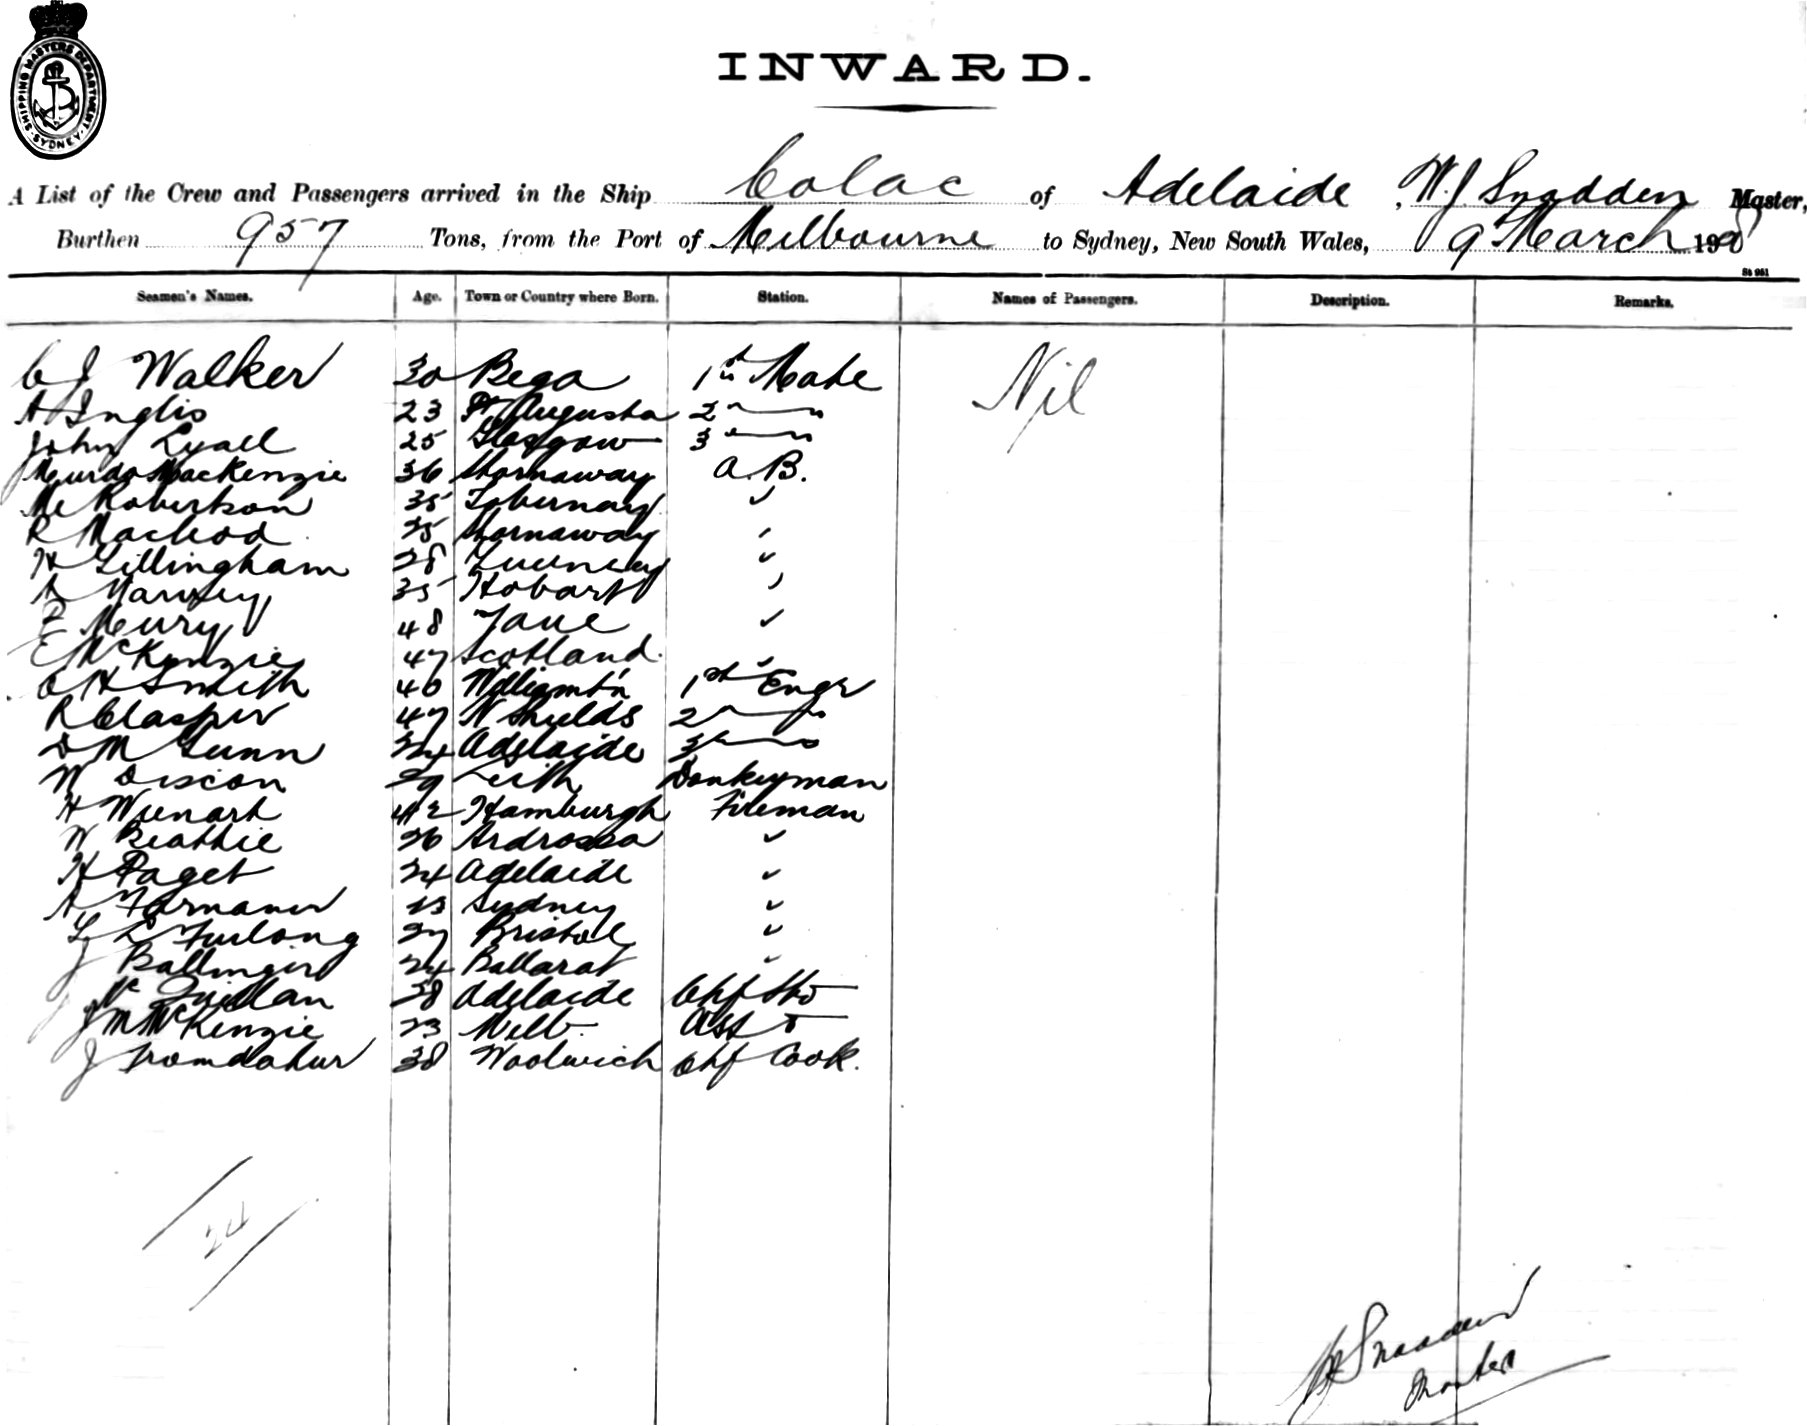 SHIPPING MASTERS DEPARTMENT. SYDNEY
INWARD.
A List of the Crew and Passengers arrived in the Ship Colac of Adelaide, W. J. Snadden Master,
Burthen 957 Tons, from the Port of Melbourne to Sydney, New South Wales, 9 March 190
St 951
Seamen's Names. Age. Town or Country where Born. Station. Names of Passengers. Description. Remarks.
C J Walker 30 Bega 1st Mate Nil
A Inglis 23 Pt Augusta 2
John Lyall 25 Glasgow 3
Murdo Mackenzie 36 Stornaway A.B.
Robertson 35
R Macleod 25 Stornaway
H Gillingham 28
35 Hobart
48
E McKenzie 47 Scotland
H Smith 40 Williamt'n 1st Engr
R Clasper 47 N Shields 2
D M Gunn 24 Adelaide 3
W 29 Leith Donkeyman
H Wienart 42 Hamburgh Fireman
W Beattie 26 Ardrossa
H Paget 24 Adelaide
A 23 Sydney
L Furlong 27 Bristol
J Ballinger 24 Ballarat
Quillan 38 Adelaide Chf
J M McKenzie 23 Melb. Asst
J 38 Woolwich Chf Cook.
24
W J Snadden
Master